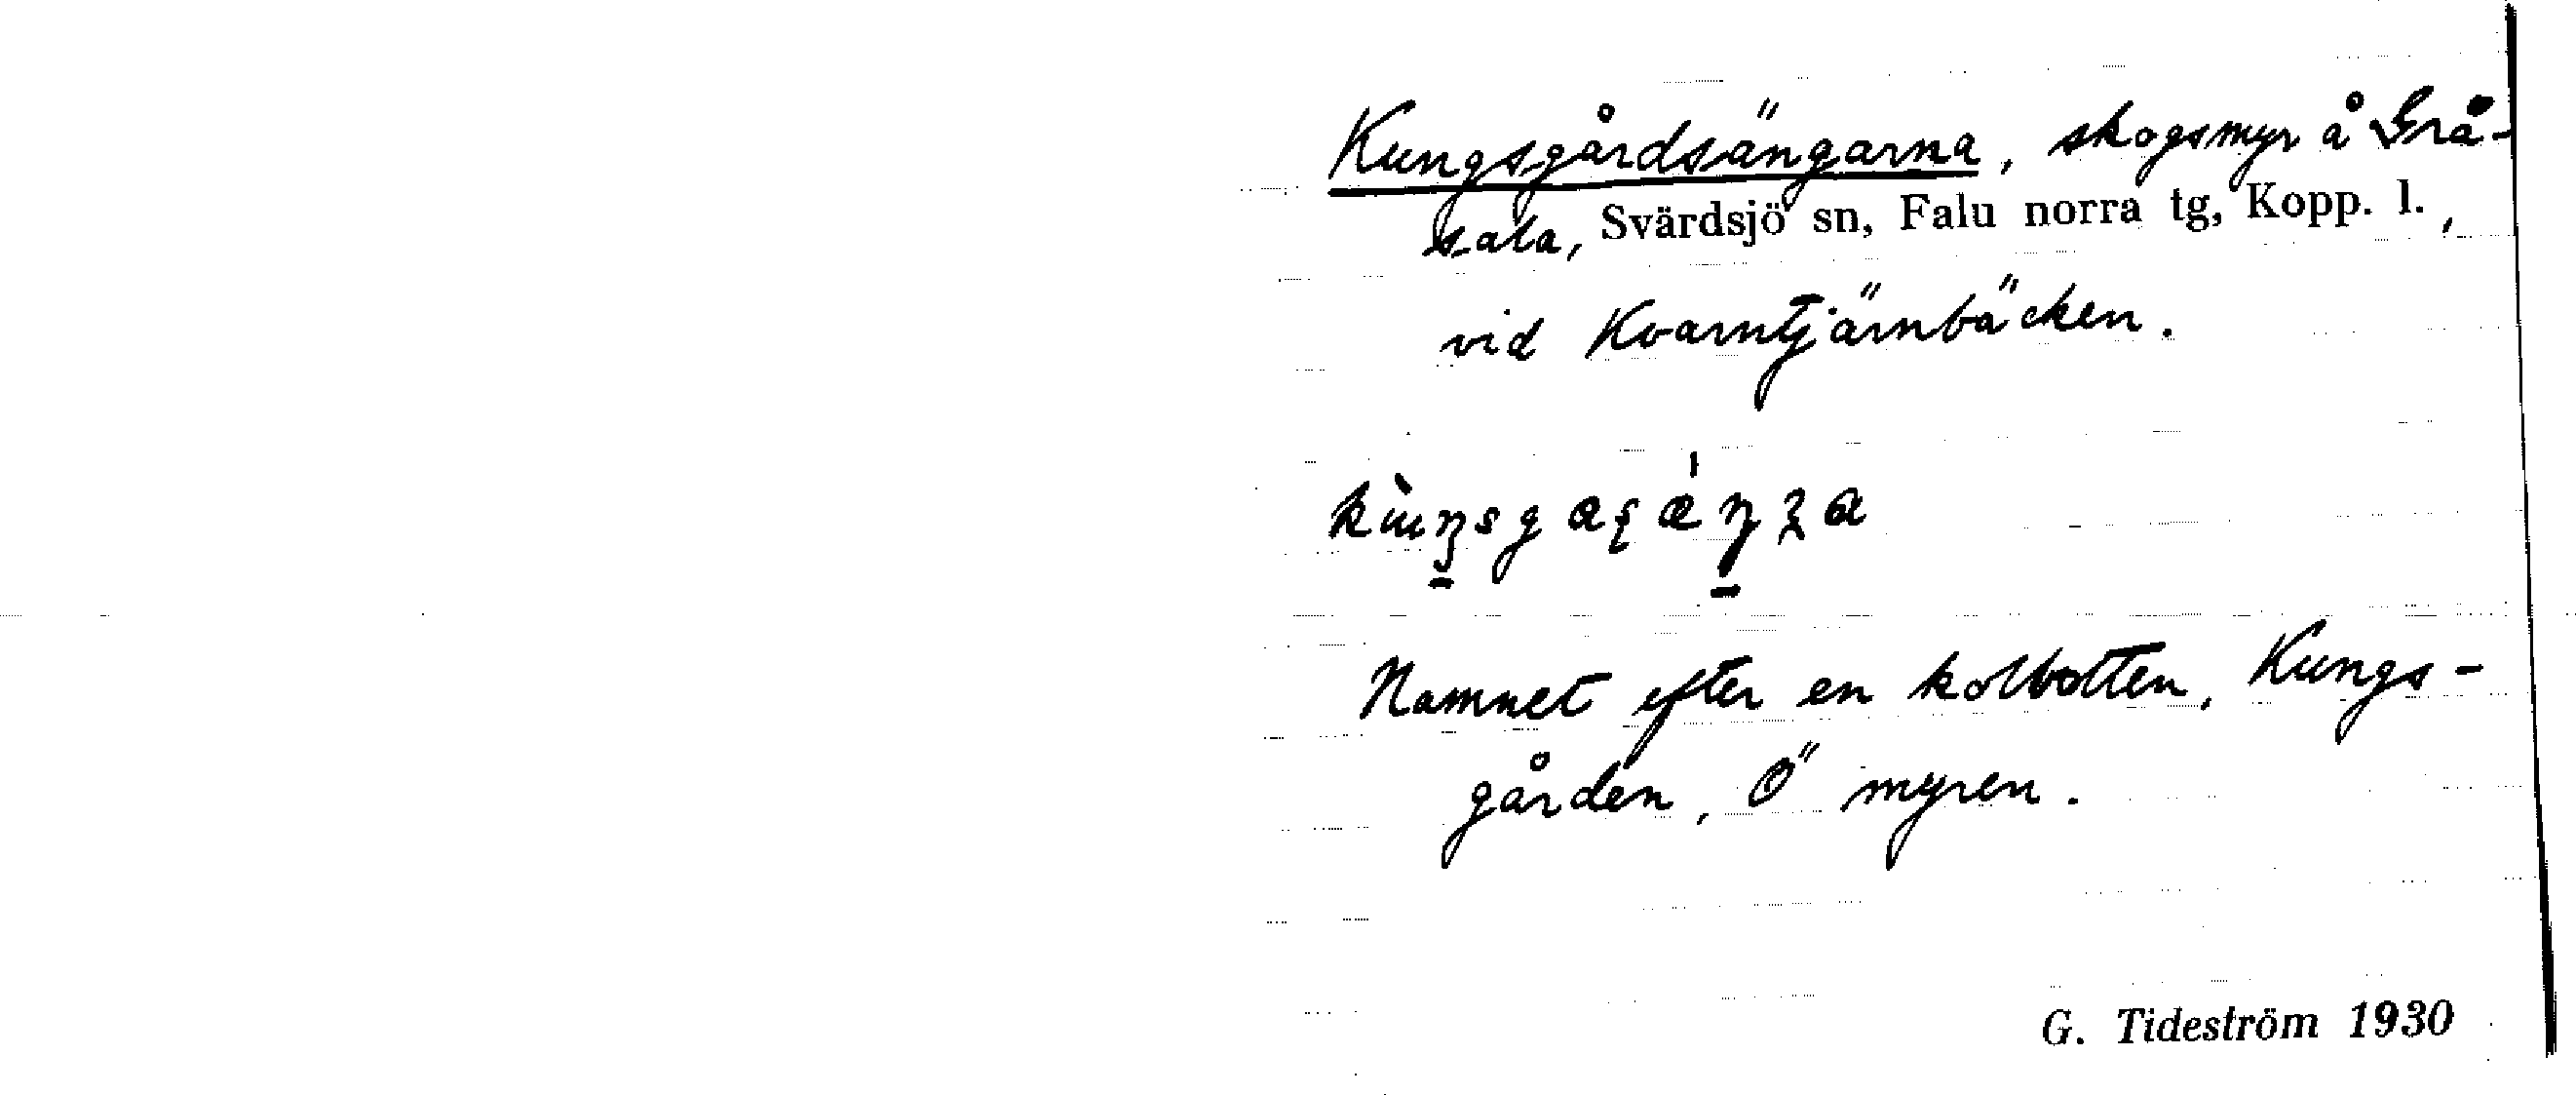 Kungsgårdsängarna, skogsmyr å Grå-
sala, Svärdsjö sn, Falu norra tg, Kopp. l.,
vid Kvarntjärnbäcken.
Namnet efter en kolbotten, Kungs-
gården, Ö myren.
G. Tideström 1930